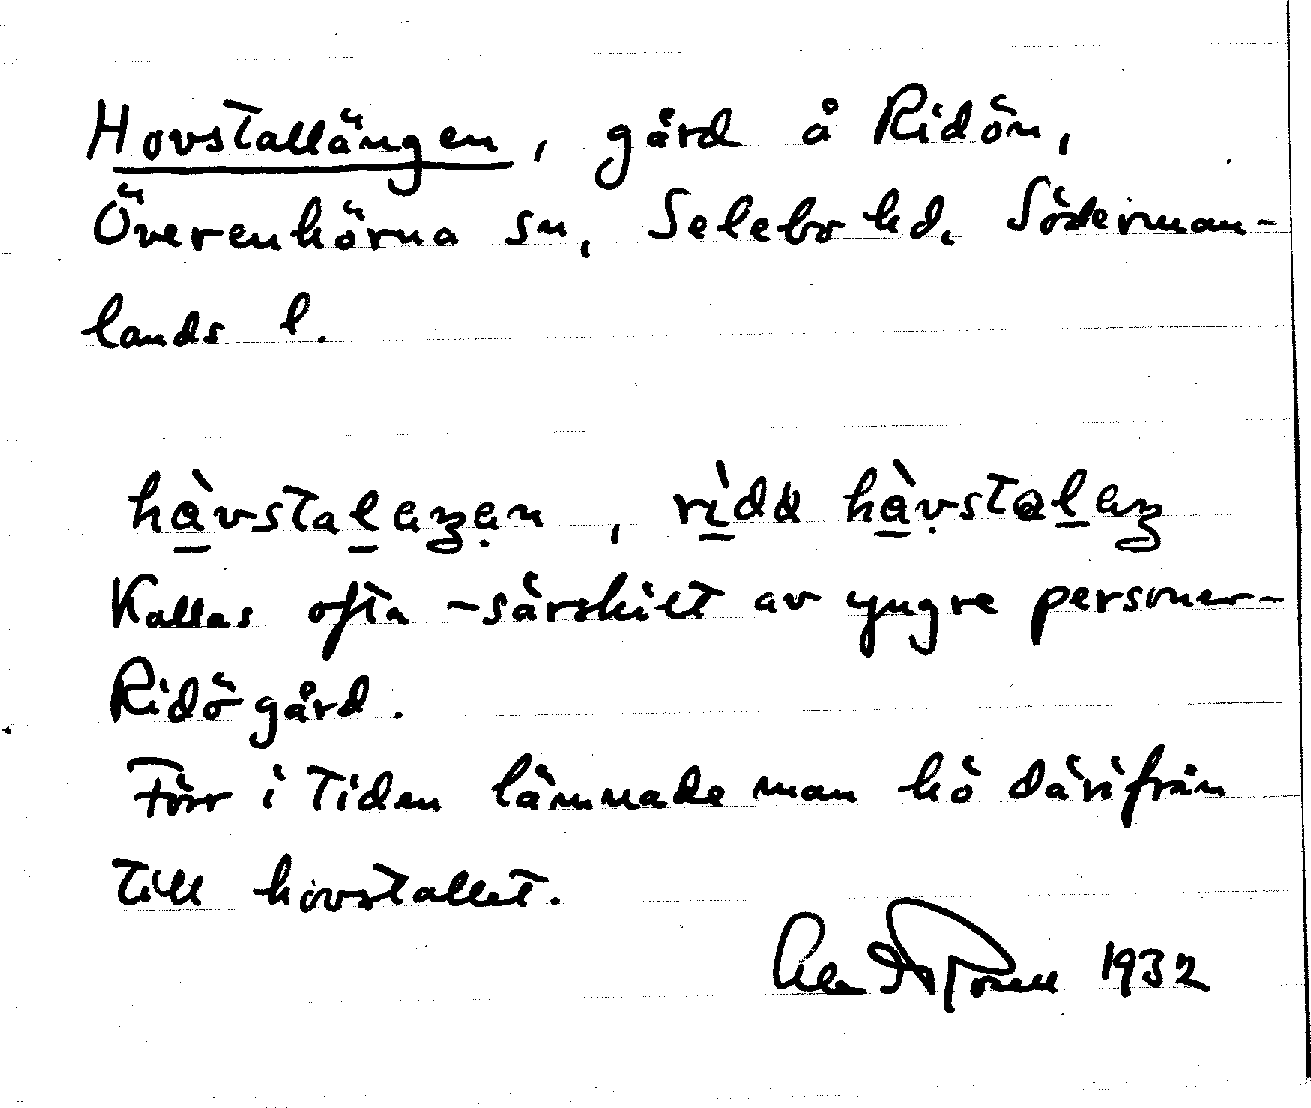 Hovstallängen, gård å Ridön,
Överenhörna sn, Selebo hd, Söderman-
lands l.
Kallas ofta - särskilt av yngre personer -
Ridögård.
Förr i tiden lämnade man hö därifrån
till hovstallet.
1932